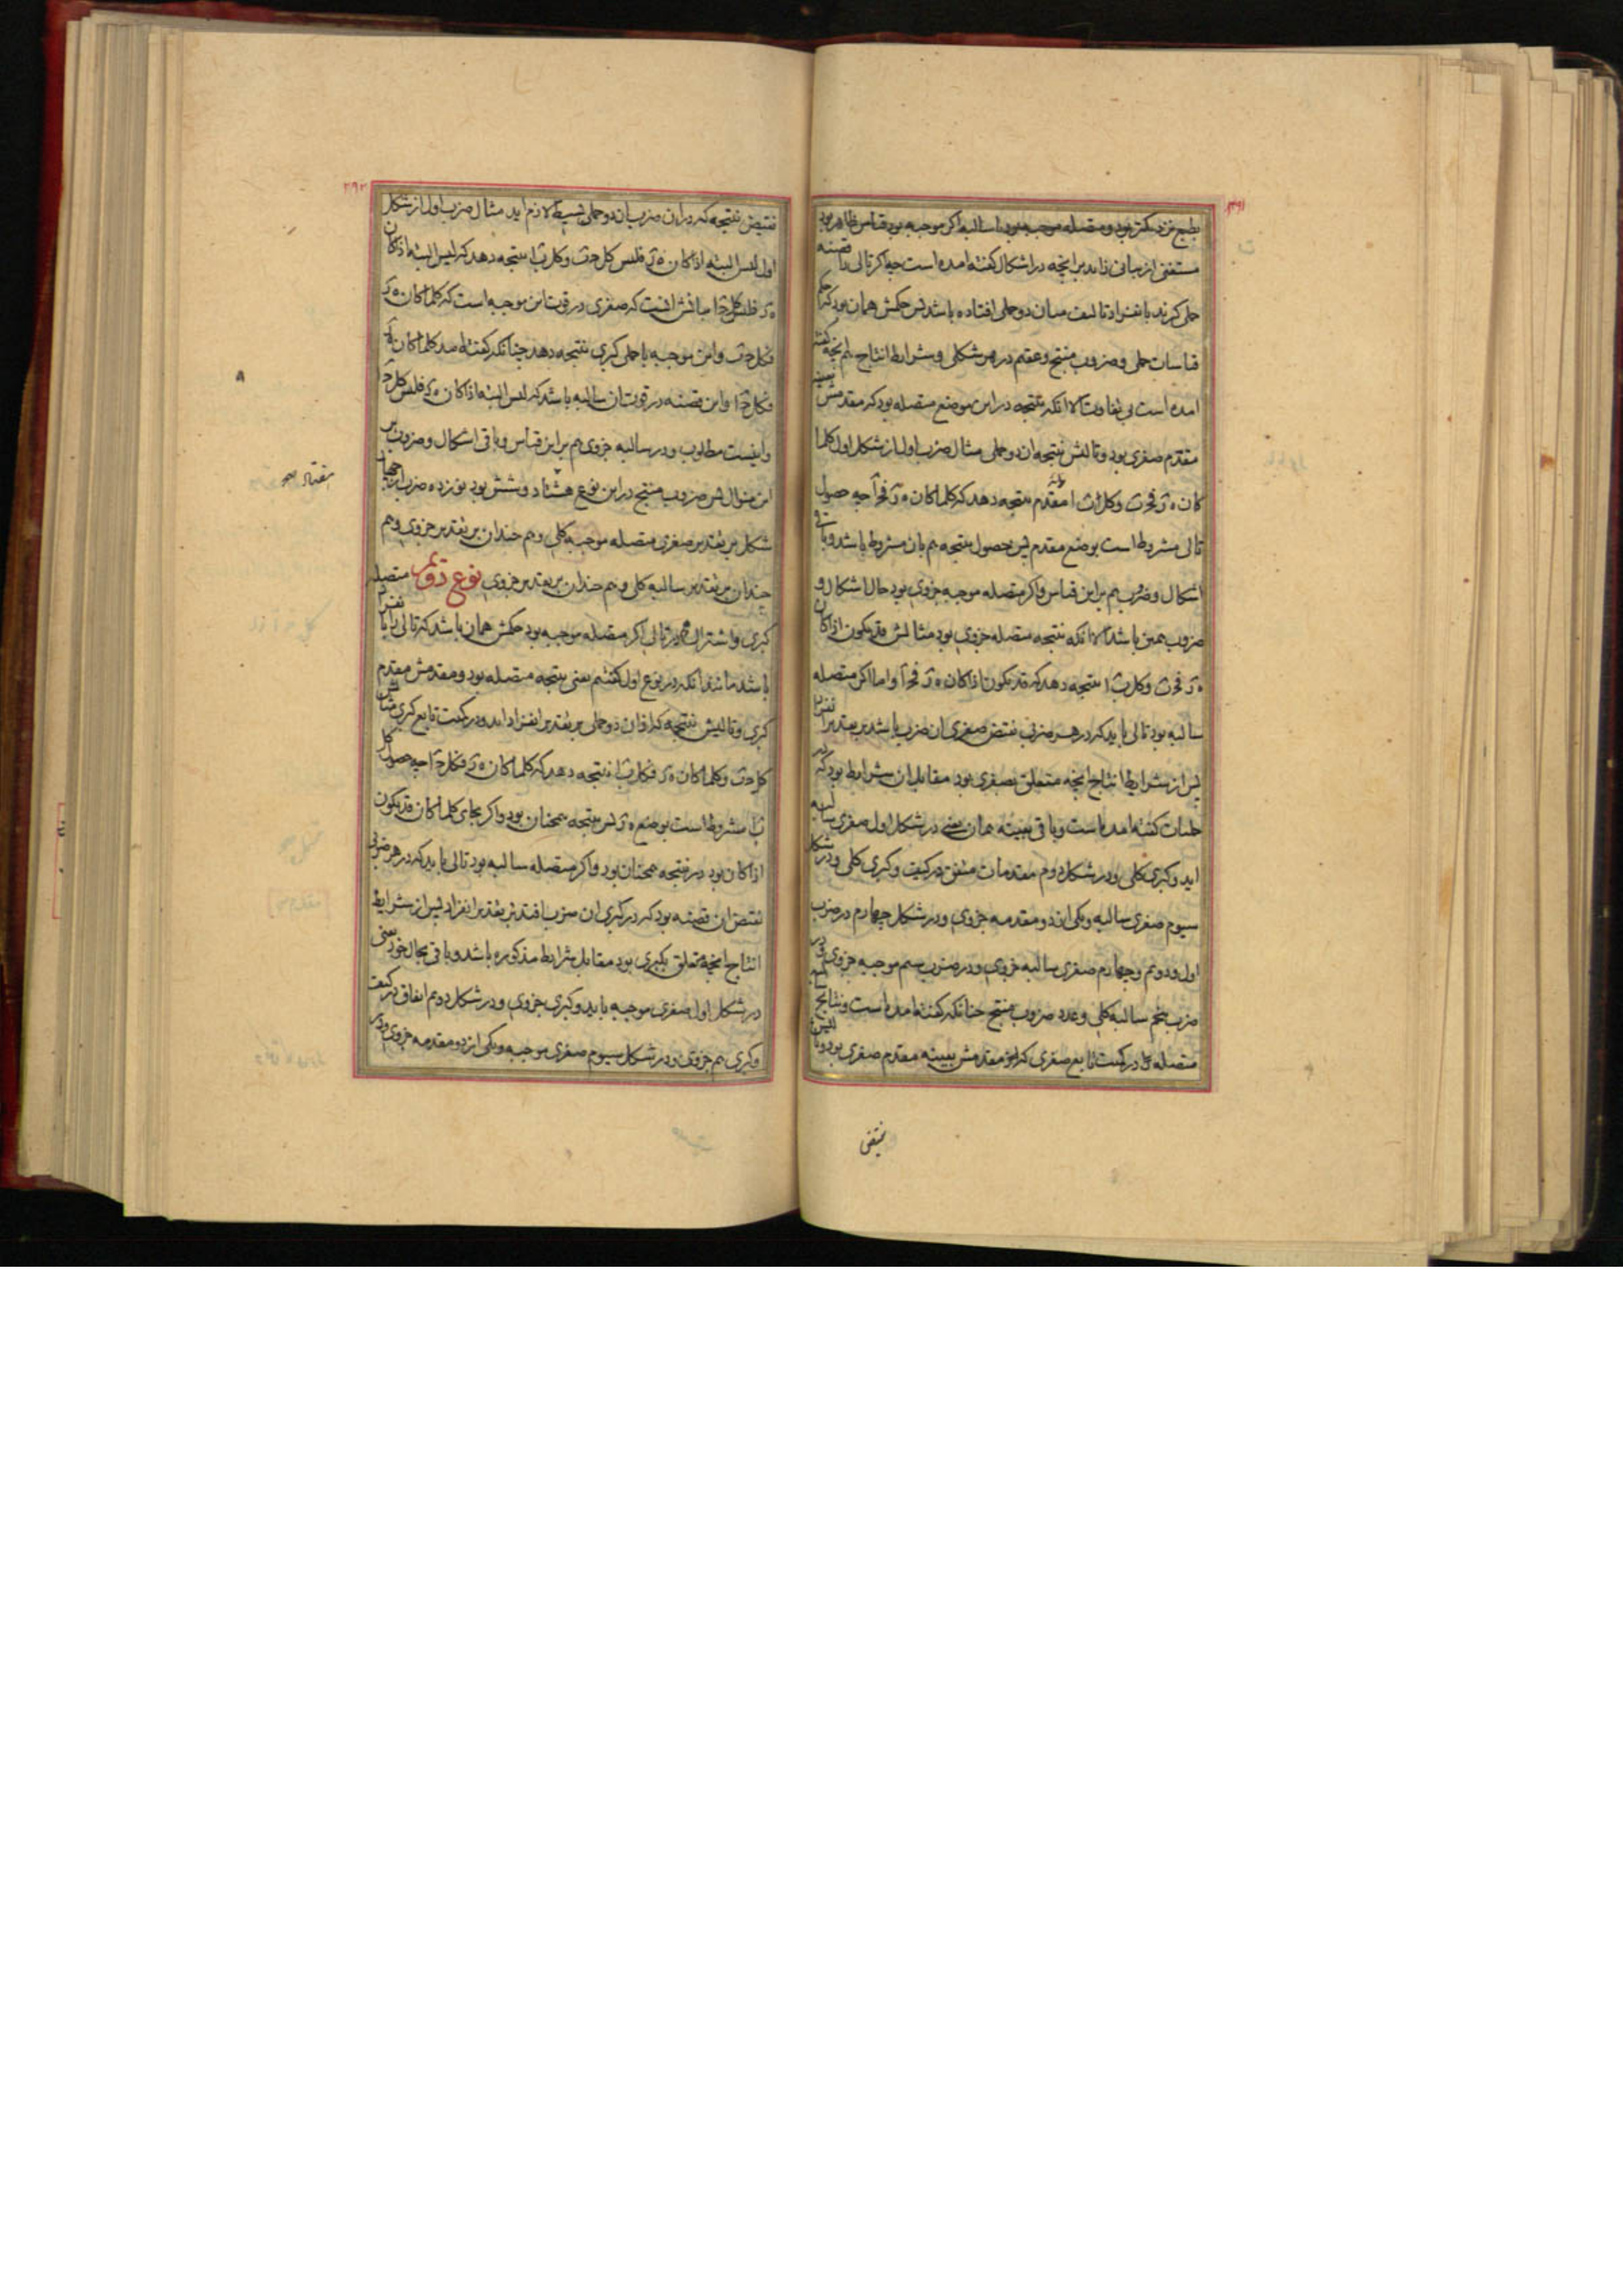 ۲۹۱
بطبع نزدیکتر بود و متصله موجبه بود یا سالبه اگر موجبه بود قیاس ظاهر بود
مستغنی از بیانی زاید بر انچه در اشکال گفته امده است چه اکر تالی را قضیه
حملی کیرند بانفراد تالیف میان دو حملی افتاده باشد پس حکمش همان بود که در
قیاسات حملی و ضروب منتج و عقیم در هر شکلی و شرایط انتاج هم انچه گفته
امده است بی تفاوت الا انکه نتیجه در این موضع متصله بود که مقدمش بعینه
مقدم صغری بود و تالیش نتیجه ان دو حملی مثال ضرب اول از شکل اول کلما
کان ه ز فج ب و کل ب ا مقدم نتیجه دهد که کلما کان ه ز فج ا چه حصول
تالی مشروط است بوضع مقدم پس حصول نتیجه هم بان مشروط باشد و باقی
اشکال و ضروب هم بر این قیاس و اکر متصله موجبه جزوی بود حال اشکال و
ضروب همین باشد الا انکه نتیجه متصله جزوی بود مثالش قد یکون اذا کان
ه ز فج ب و کل ب ا نتیجه دهد که قد یکون اذا کان ه ز فج ا و اما اکر متصله
سالبه بود تالی باید که در هر ضربی نقیض صغری ان ضرب باشد بر تقدیر انفراد
پس از شرایط انتاج انچه متعلق بصغری بود مقابل ان شرایط بود که در
حملیات گفته امده است و باقی بعینه همان یعنی در شکل اول صغری سالبه
اید و کبری کلی و در شکل دوم مقدمات متفق در کیف و کبری کلی و در شکل
سیوم صغری سالبه و یکی از دو مقدمه جزوی و در شکل چهارم در ضرب
اول و دوم و چهارم صغری سالبه جزوی و در ضرب سیم موجبه جزوی و در
ضرب پنجم سالبه کلی و عدد ضروب منتج چنانکه گفته امده است و نتایج
متصله در کمیت تابع صغری که مقدمش بعینه مقدم صغری بود و تالیش
نقیض
۲۹۲
نقیض نتیجه که در ان ضرب ان دو حملی بسیط لازم اید مثال ضرب اول از شکل
اول لیس البته اذا کان ه ز فلیس کل ج ب و کل ب ا نتیجه دهد که لیس البته اذا کان
ه ز فلیس کل ج ا بیانش انست که صغری در قوت این موجبه است که کلما کان ه ز
فکل ج ب و این موجبه با حملی کبری نتیجه دهد چنانکه گفته امد کلما کان ه ز
فکل ج ا و این قضیه در قوت ان سالبه باشد که لیس البته اذا کان ه ز فلیس کل ج ا
و اینست مطلوب و در سالبه جزوی هم بر این قیاس و باقی اشکال و ضروب بر
این منوال پس ضروب منتج در این نوع هشتاد و شش بود نوزده ضرب از چهار
شکل بر تقدیر صغری متصله موجبه کلی و هم چندان بر تقدیر جزوی و هم
چندان بر تقدیر سالبه کلی و هم چندان بر تقدیر جزوی نوع دوم متصله
کبری و اشتراک هم در تالی اکر متصله موجبه بود حکمش همان باشد که تالی بانفراد
باشد مانند انکه در نوع اول گفتیم یعنی نتیجه متصله بود و مقدمش مقدم
کبری و تالیش نتیجه که از ان دو حملی بر تقدیر انفراد اید و در کمیت تابع کبری مثالش
کل ج ب و کلما کان ه ز فکل ب ا نتیجه دهد که کلما کان ه ز فکل ج ا چه حصول کل
ب ا مشروط است بوضع ه ز پس نتیجه همچنان بود و اکر بجای کلما کان قد یکون
اذا کان بود در نتیجه همچنان بود و اکر متصله سالبه بود تالی باید که در هر ضربی
نقیض ان قضیه بود که در کبری ان ضرب افتد بر تقدیر انفراد پس از شرایط
انتاج انچه متعلق بکبری بود مقابل شرایط مذکوره باشد و باقی بحال خود یعنی
در شکل اول صغری موجبه باید و کبری جزوی و در شکل دوم اتفاق در کیف
و کبری هم جزوی و در شکل سیوم صغری موجبه و یکی از دو مقدمه جزوی و در
هفتاد صح